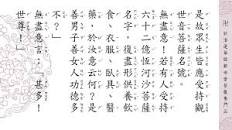 卍 妙法蓮華經觀世音菩薩普門品
是故眾生皆應受持觀
世音菩薩名號。
無盡意！若有人受持
六十二億恆河沙菩薩
名字，復盡形供養飲
食、衣服、臥具、醫
藥，於汝意云何？是
善男子善女人功德多
不？」
無盡意言：「甚多！
世尊！」